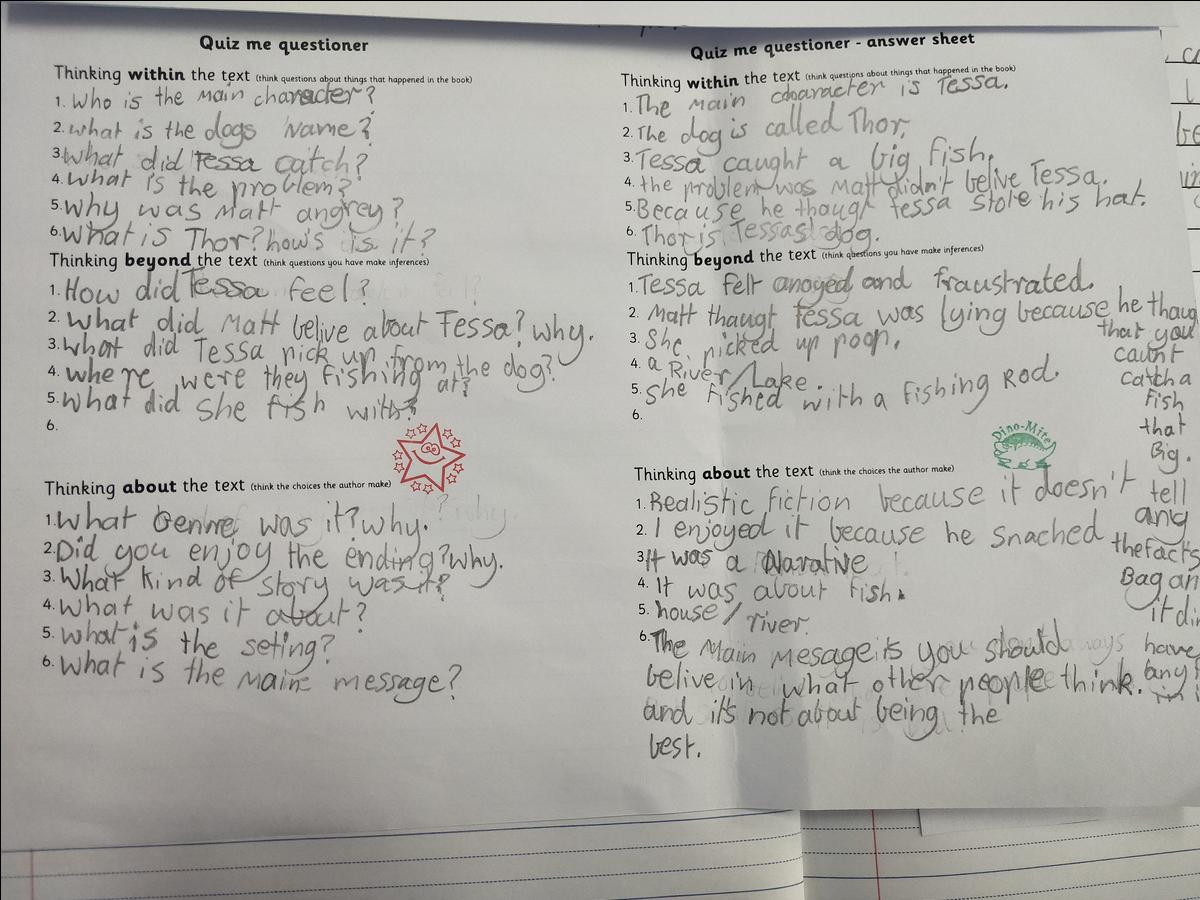 Quiz me questioner
Thinking within the text (think questions about things that happened in the book)
1. Who is the main character?
2. what is the dogs Name?
3. what did Tessa catch?
4. what is the problem?
5. why was Matt angrey?
6. What is Thor? how's is it?
Thinking beyond the text (think questions you have make inferences)
1. How did Tessa feel?
2. what did Matt belive about Tessa? why.
3. what did Tessa pick up from the dog?
4. where were they fishing at?
5. what did she fish with?
6.
Thinking about the text (think the choices the author make)
1. What Genre was it? why.
2. Did you enjoy the ending? why.
3. What kind of story was it?
4. what was it about?
5. what is the seting?
6. what is the main message?
Quiz me questioner - answer sheet
Thinking within the text (think questions about things that happened in the book)
1. The main character is Tessa.
2. The dog is called Thor.
3. Tessa caught a big fish.
4. the problem was Matt didn't belive Tessa.
5. Because he thaugt tessa stole his hat.
6. Thor is Tessas dog.
Thinking beyond the text (think questions you have make inferences)
1. Tessa felt anoyed and fraustrated.
2. Matt thaugt tessa was lying because he thaug
that you
caun't
catch a
fish
that
Big.
3. She picked up poop.
4. a River/Lake.
5. she fished with a fishing Rod.
6.
Dino-Mite!
Thinking about the text (think the choices the author make)
1. Realistic fiction because it doesn't tell
any
the facts
2. I enjoyed it because he snached
Bag an
it di
3. It was a Narative
4. It was about fish.
5. house/river.
6. The main mesage is you should
belive in what other people think.
and it's not about being the
best.
have
any